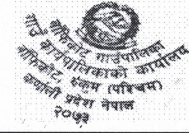 चौफिकोट गाउँपालिका
गाउँ कार्यपालिकाको कार्यालय
चौफिकोट रुकुम (पश्चिम)
कर्णाली प्रदेश नेपाल
२०७३